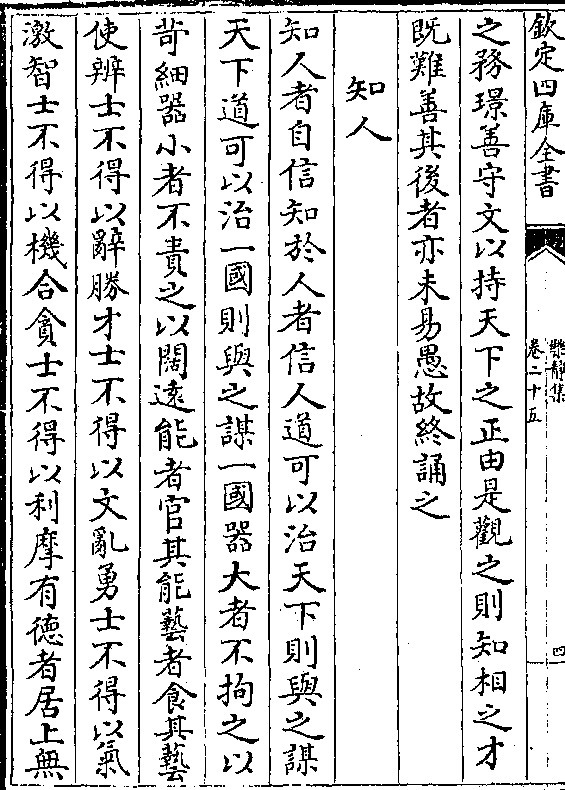 欽定四庫全書
雞肋集
卷二十五
四
之務璟善守文以持天下之正由是觀之則知相之才
既難善其後者亦未易愚故終誦之
知人
知人者自信知於人者信人道可以治天下則與之謀
天下道可以治一國則與之謀一國器大者不拘之以
苛細器小者不責之以闊遠能者官其能藝者食其藝
使辨士不得以辭勝才士不得以文亂勇士不得以氣
激智士不得以機合貪士不得以利摩有德者居上無